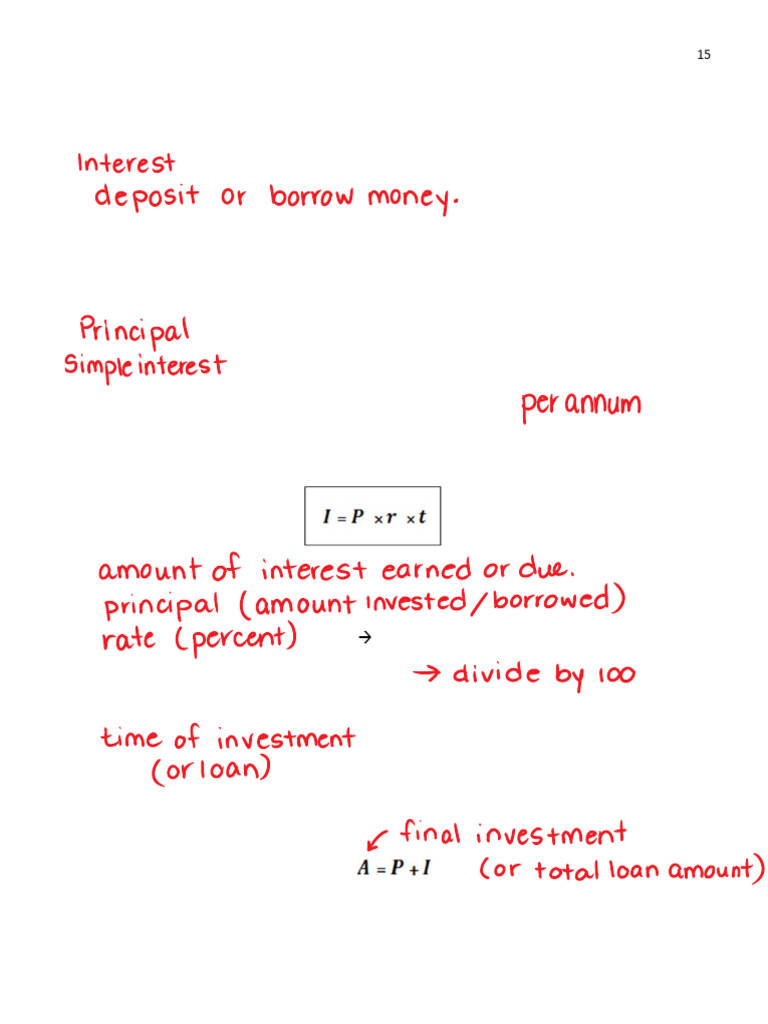 15
Interest
deposit or borrow money.
Principal
Simple interest
per annum
I = P × r × t
amount of interest earned or due.
principal (amount invested/borrowed)
rate (percent) →
→ divide by 100
time of investment
(or loan)
final investment
A = P + I (or total loan amount)